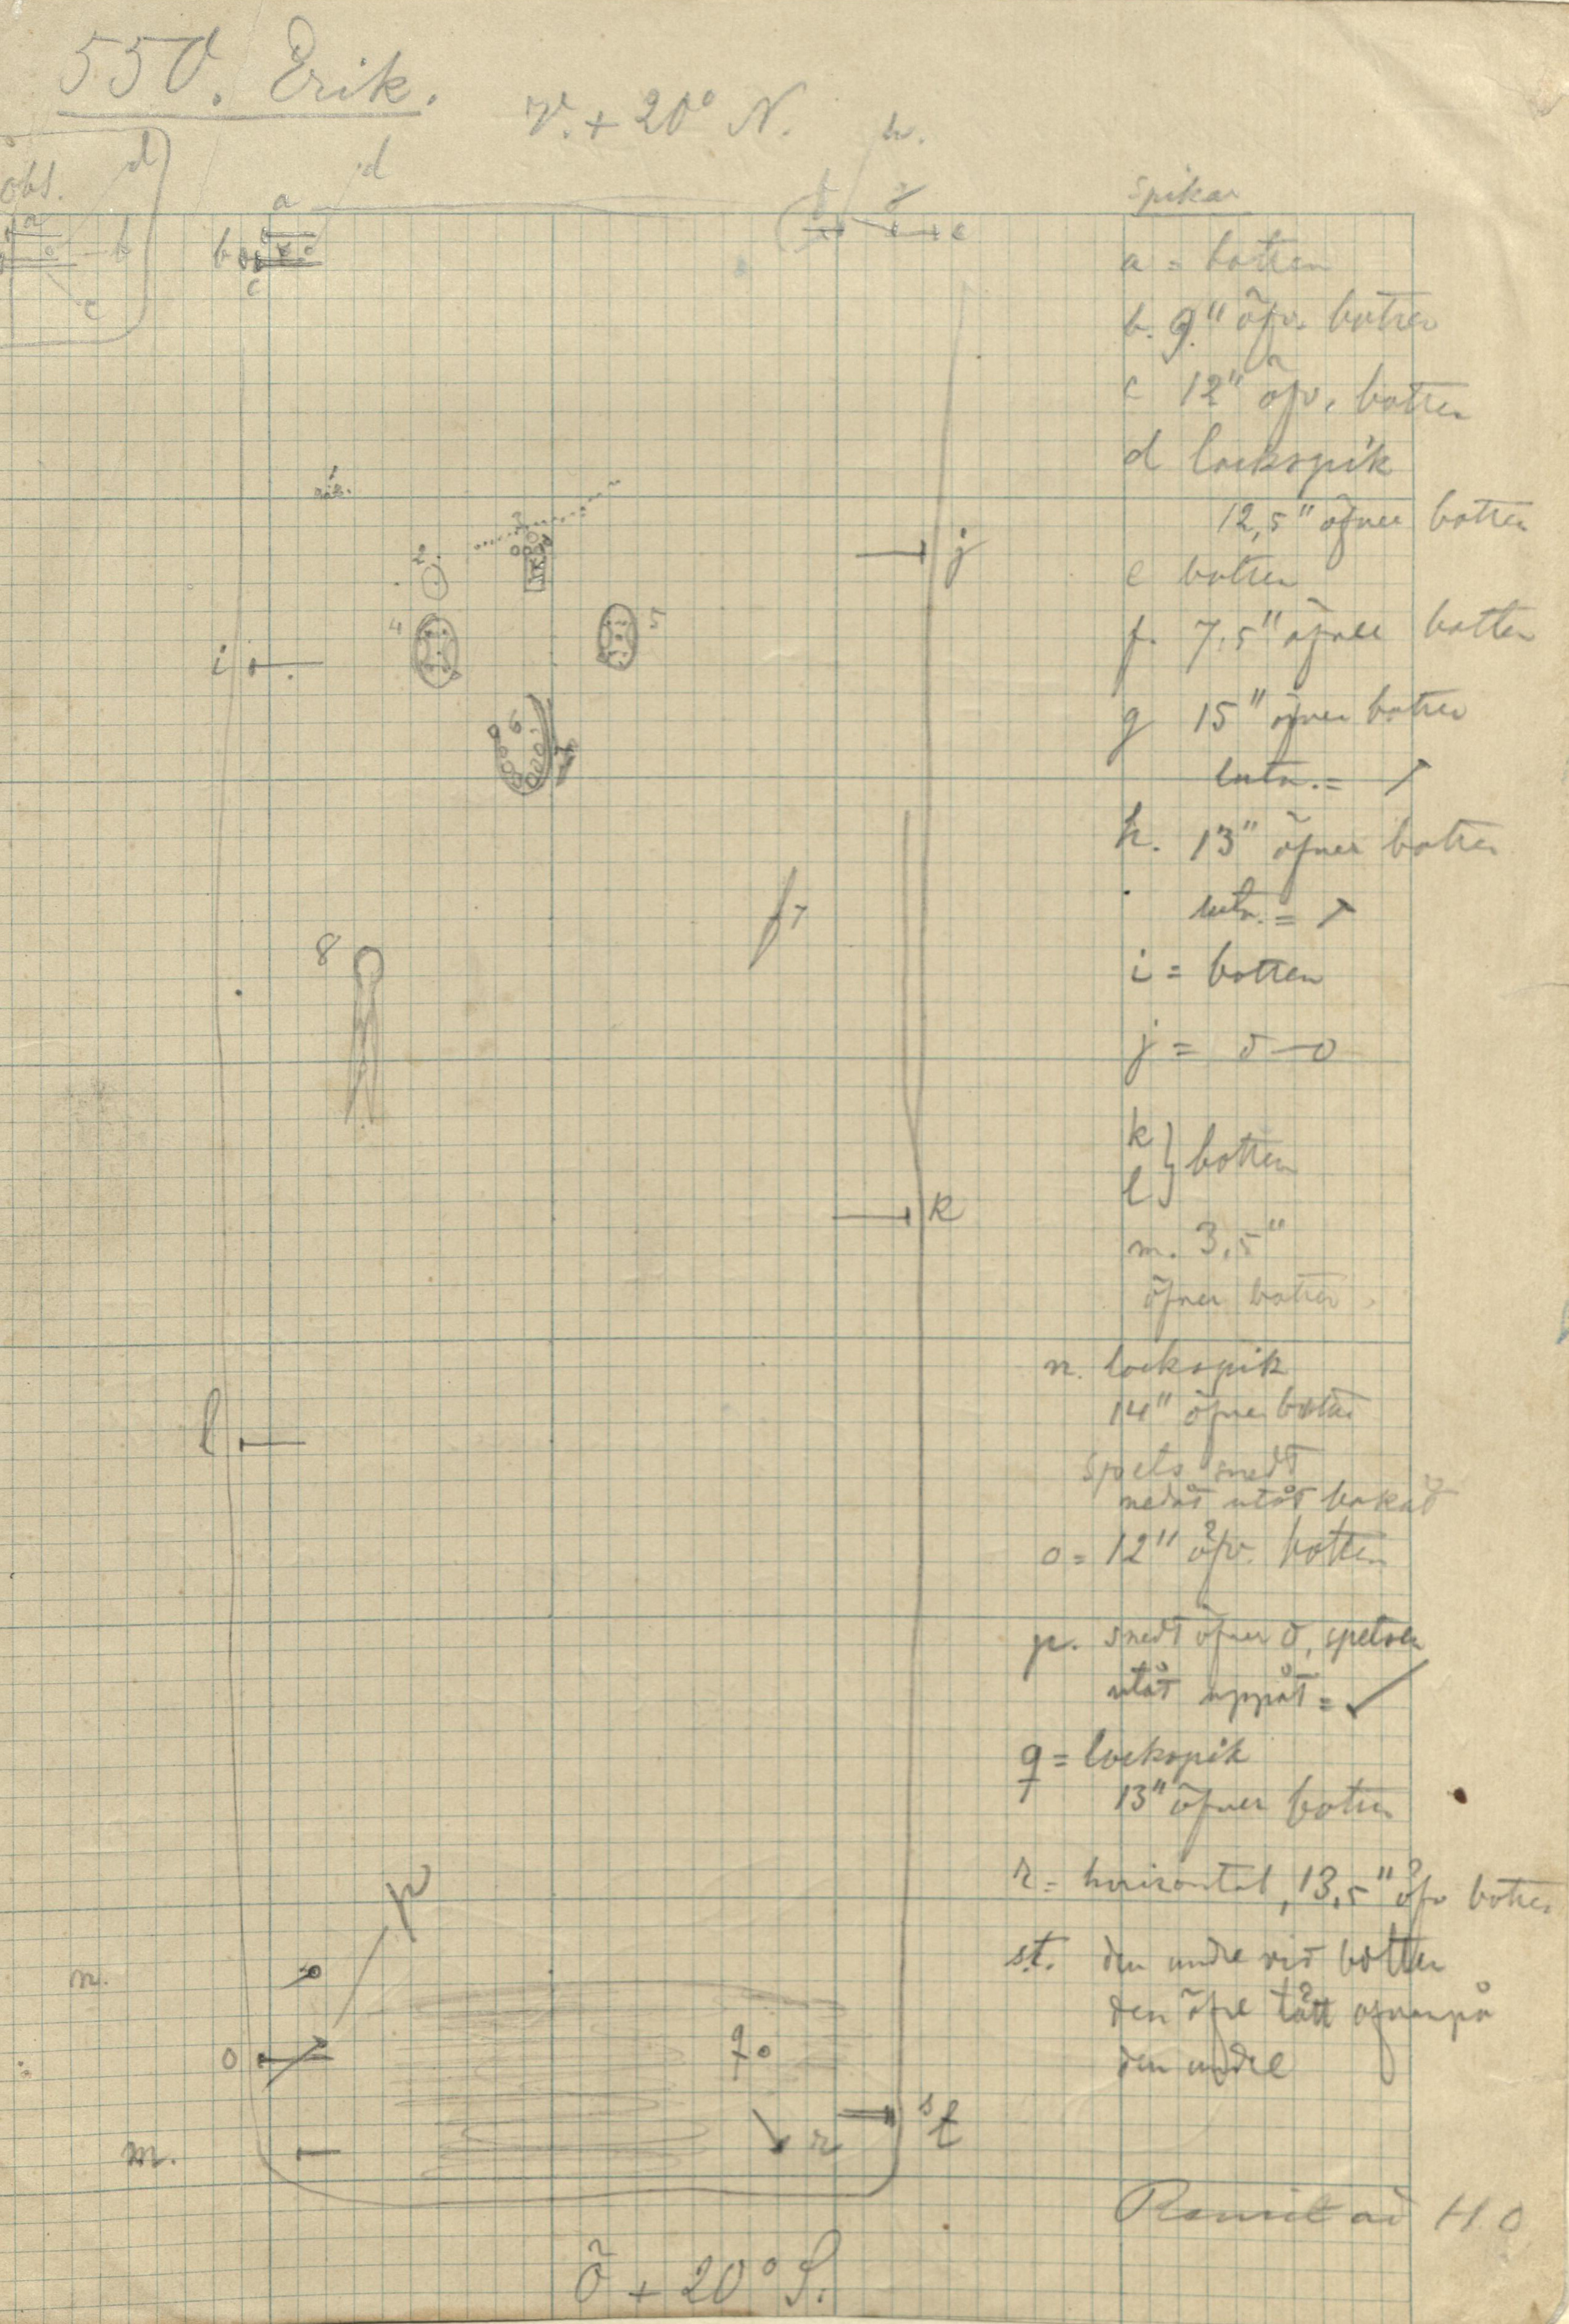 550. Erik.
V. + 20° N.
h.
obs.
d
a
b
c
d
a
b
c
f
g
e
Spikar
a = botten
b. 9" öfv. botten
c 12" öfv. botten
d lockspik
12,5" öfver botten
e botten
f. 7,5" öfver botten
g 15" öfver botten
lutn. =
h. 13" öfver botten
lutn. =
i = botten
j = d—o
k
l } botten
m. 3,5"
öfver botten
n. lockspik
14" öfver botten
Spets snedt
nedåt utåt bakåt
o = 12" öfv. botten
p. snedt öfver o, spetsen
utåt uppåt =
q = lockspik
13" öfver botten
r = horisontal, 13,5" öfv botten
s.t. den undre vid botten
den öfre tätt ofvanpå
den undre
1
2.
3
4
5
6
7
8
i
j
k
l
p
n.
o
q
m.
r
s t
H. O
Ö + 20° S.